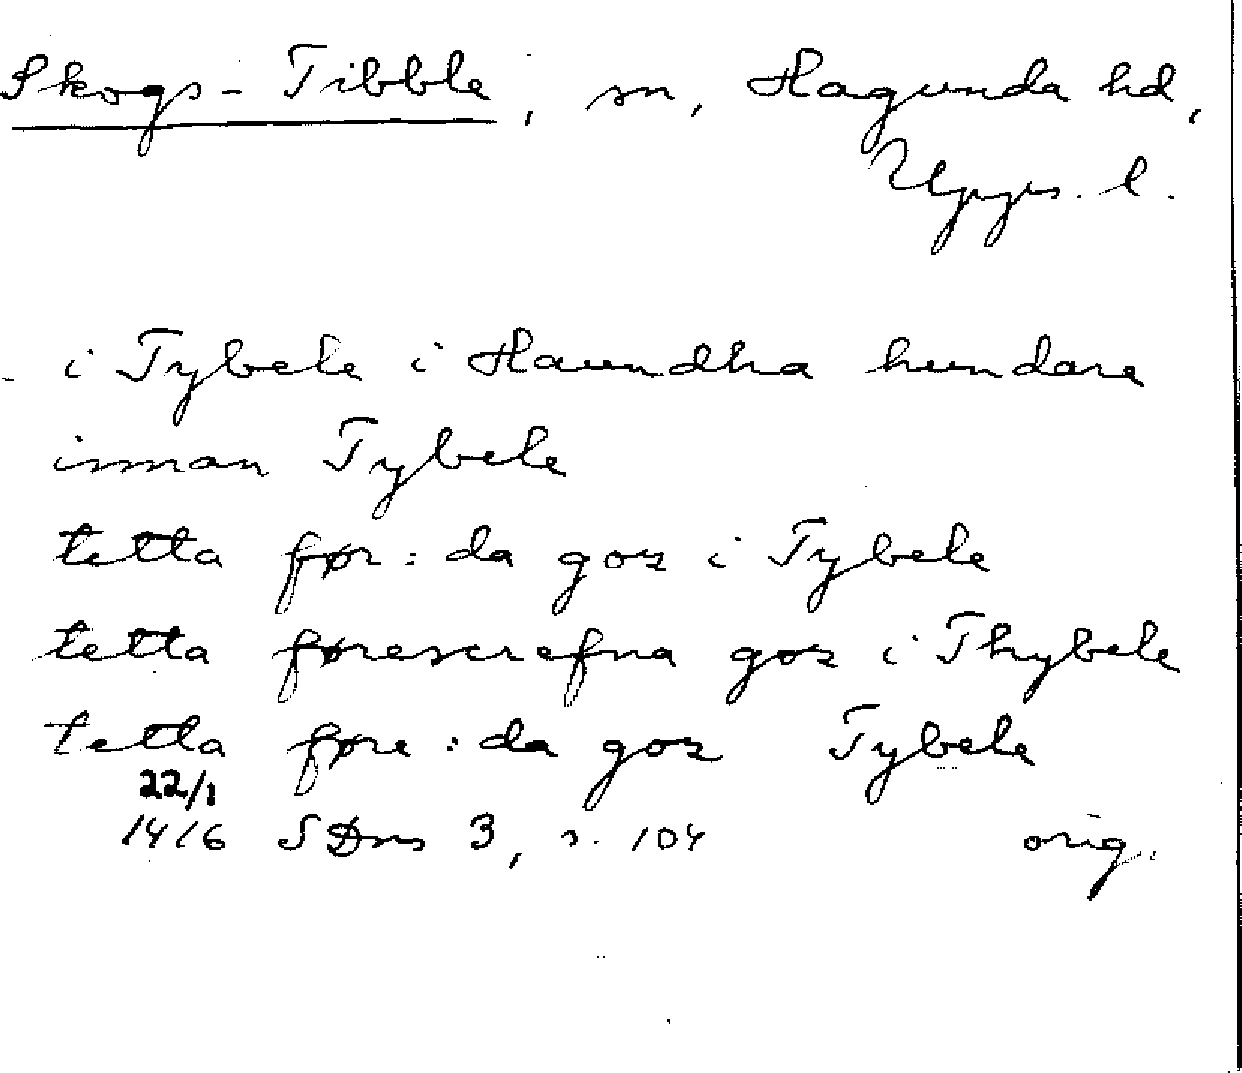 Skogs-Tibble, sn, Hagunda hd,
Upps. l.
- i Tybele i Haundha hundare
innan Tybele
tetta før:da goz i Tybele
tetta førescrefna goz i Thybele
tetta føre:da goz Tybele
22/1
1416 SDns 3, s. 104 orig.